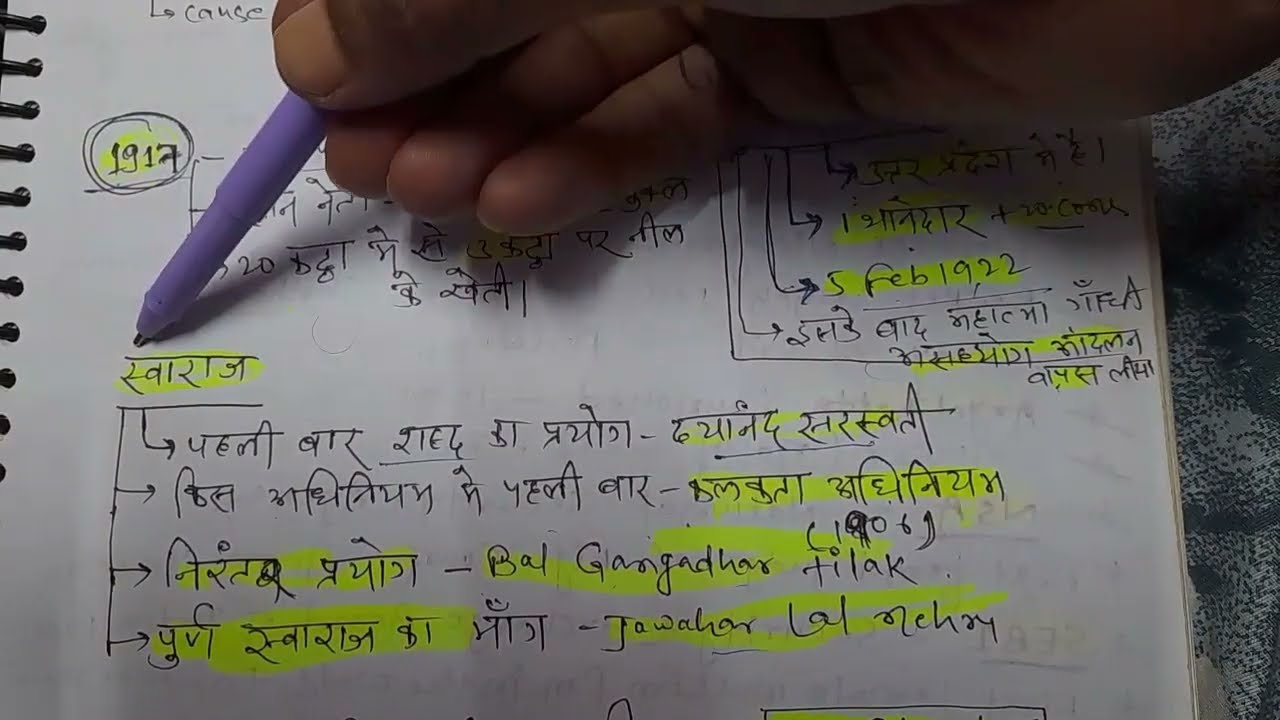 ↳ cause
1917 -
नेता - शुक्ल
20 कट्ठा में से 3 कट्ठा पर नील
के खेती।
उत्तर प्रदेश में है।
1 थानेदार +
5 Feb 1922
इसके बाद महात्मा गाँधी
असहयोग आंदलन
वापस लीया
स्वाराज
पहली बार शब्द का प्रयोग - दयानंद सरस्वती
किस अधिनियम में पहली बार - कलकता अधिनियम
(1906)
निरंतर प्रयोग - Bal Gangadhar tilak.
पुर्ण स्वाराज का माँग - Jawahar Lal nehru